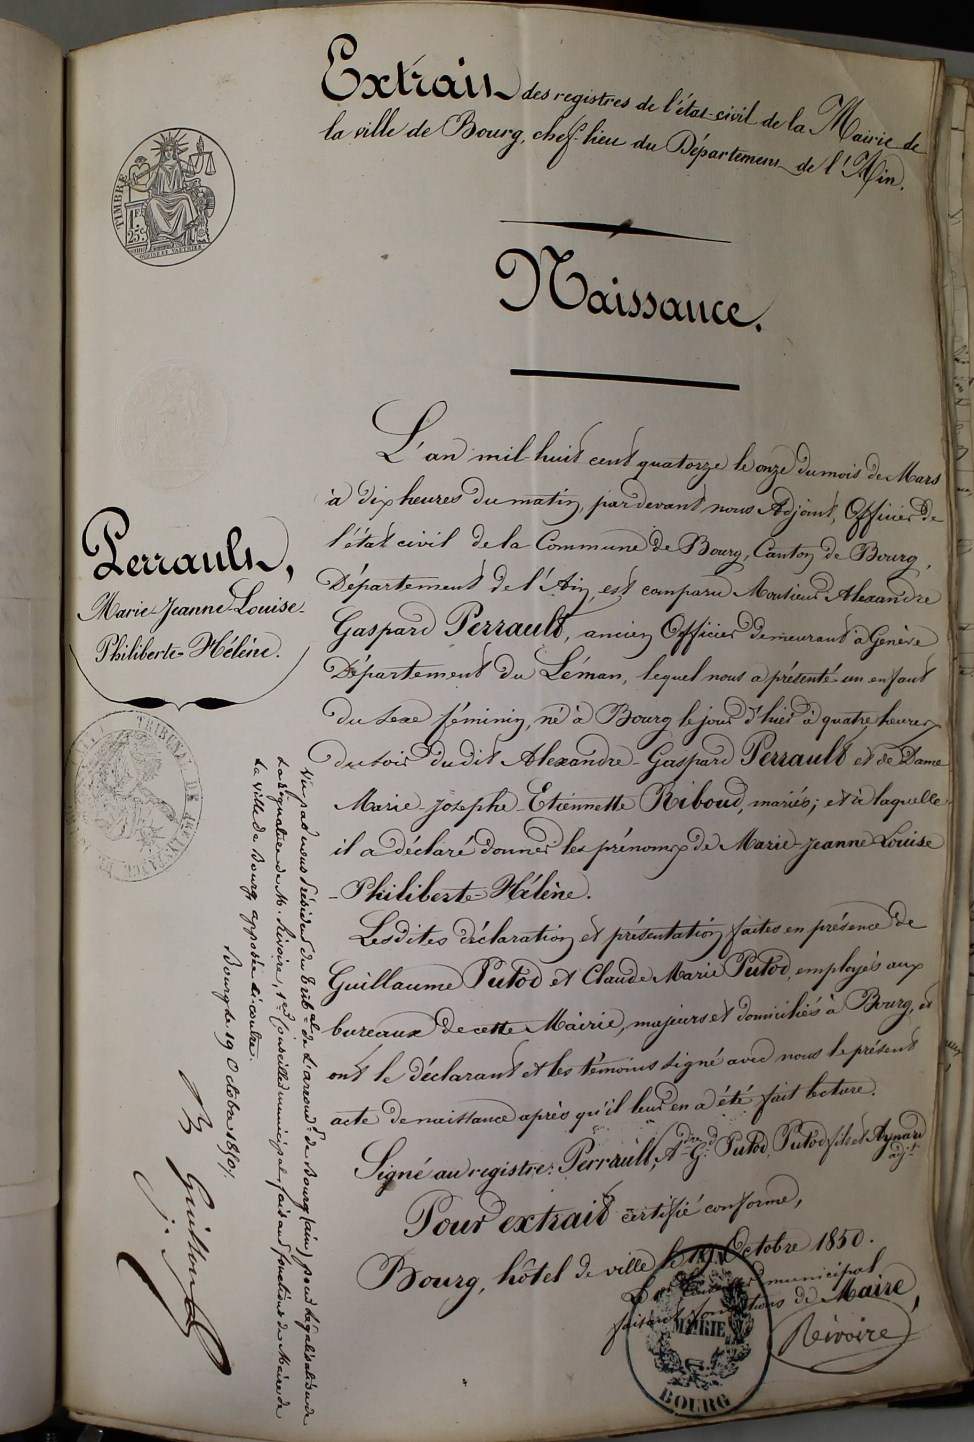 Extrait des registres de l'état-civil de la Mairie de
la ville de Bourg, chef-lieu du Département de l'Ain.
TIMBRE
1 Fr
25 c
Naissance.
Perrault,
Marie-Jeanne-Louise-
Philiberte-Hélène.
L'an mil-huit cent quatorze le onze du mois de Mars
à dix heures du matin, pardevant nous Adjoint, Officier de
l'état civil de la Commune de Bourg, Canton de Bourg,
Département de l'Ain, est comparu Monsieur Alexandre
Gaspard Perrault, ancien Officier demeurant à Genève
Département du Léman, lequel nous a présenté un enfant
du sexe féminin, né à Bourg le jour d'hier à quatre heures
du soir dudit Alexandre-Gaspard Perrault et de Dame
Marie-Josephe Etiennette Riboud, mariés; et à laquelle
il a déclaré donner les prénoms de Marie-Jeanne-Louise
-Philiberte-Hélène.
Lesdites déclaration et présentation faites en présence de
Guillaume Putod et Claude Marie Putod, employés aux
bureaux de cette Mairie, majeurs et domiciliés à Bourg, et
ont le déclarant et les témoins signé avec nous le présent
acte de naissance après qu'il leur en a été fait lecture.
Signé au registre: Perrault, Adre Gd Putod, Putod fils et Aynard
adjt
Pour extrait certifié conforme,
Bourg, hôtel de ville, le 19 Octobre 1850.
Le 1er Conseiller municipal
faisant fonctions de Maire,
Rivoire
MAIRIE
BOURG
TRIBUNAL DE 1ERE INSTANCE
Vu par nous Président du tribal de l'arrondt de Bourg (ain) pour légalisation de
la signature de M. Rivoire, 1er Conseiller municipal faisant fonctions de Maire de
la ville de Bourg, apposée ci contre.
Bourg le 19 Octobre 1850.